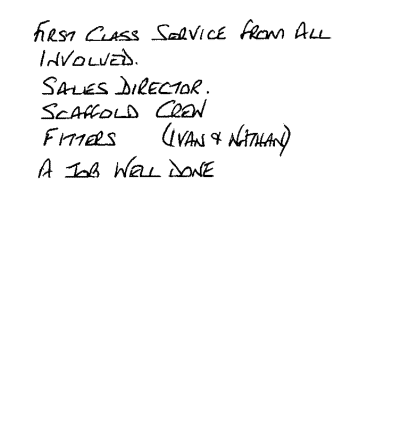 FIRST CLASS SERVICE FROM ALL
INVOLVED.
SALES DIRECTOR.
SCAFFOLD CREW
FITTERS (IVAN & NATHAN)
A JOB WELL DONE